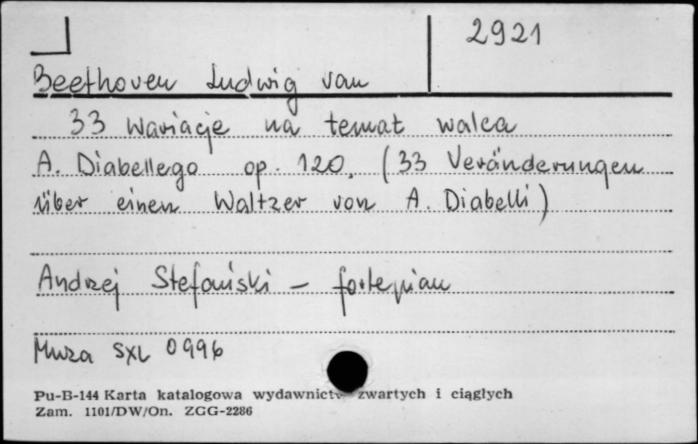 2921
Beethoven Ludwig van
33 Wariacje na temat walca
A. Diabellego op. 120. (33 Veränderungen
über einen Waltzer von A. Diabelli)
Andrzej Stefański – fortepian
Muza SXL 0996
Pu-B-144 Karta katalogowa wydawnictw zwartych i ciągłych
Zam. 1101/DW/On. ZGG-2286